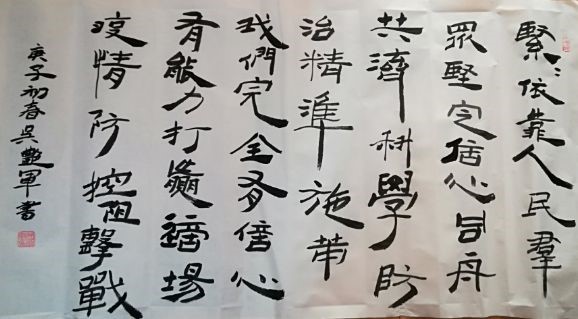 緊々依靠人民羣
眾堅定信心同舟
共濟科學防
治精準施策
我們完全有信心
有能力打贏這場
疫情防控阻擊戰
庚子初春吳艷軍書